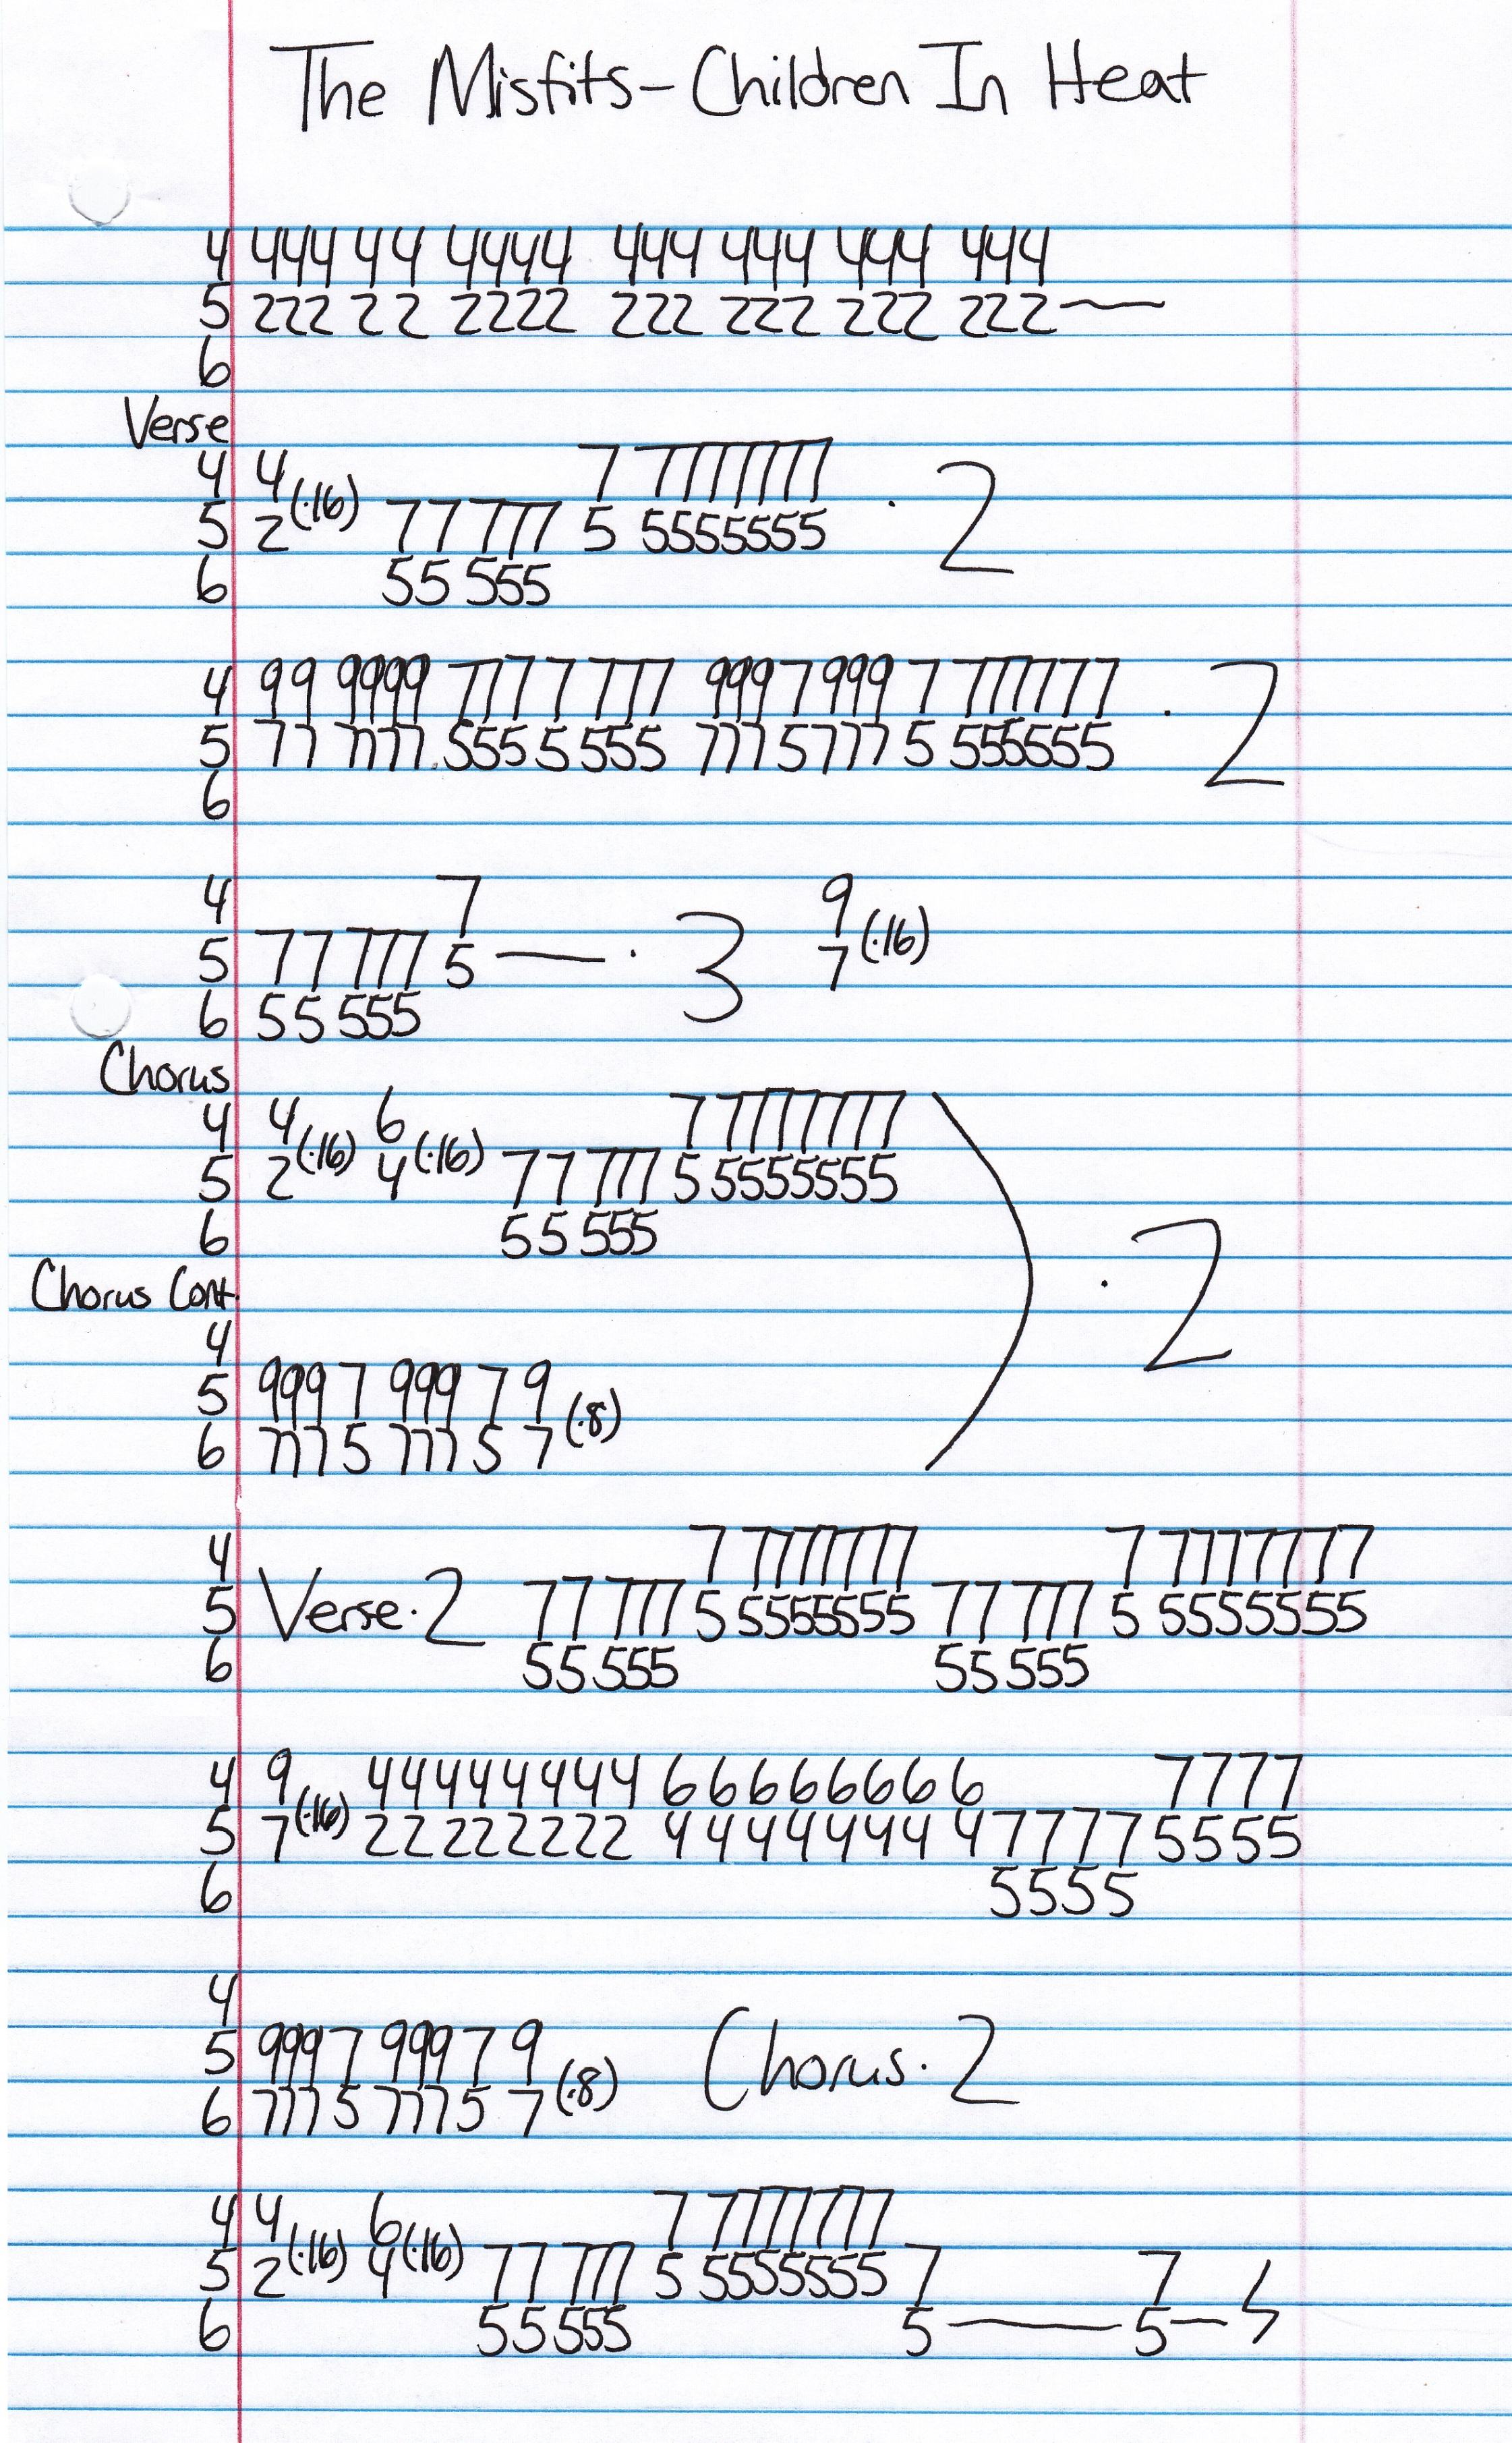 The Misfits - Children In Heat
4 444 44 4444 444 444 444 444
5 222 22 2222 222 222 222 222—
6
Verse
4 4 7 7777777
5 2(·16) 77 777 5 5555555 · 2
6 55 555
4 99 9999 777 7 777 999 7 999 7 777777
5 77 7777 555 5 555 777 5 777 5 555555 · 2
6
4 7 9
5 77 777 5 — · 3 7(·16)
6 55 555
Chorus
4 4 6 7 7777777
5 2(·16) 4(·16) 77 777 5 5555555
6 55 555
) · 2
Chorus Cont.
4
5 999 7 999 7 9
6 777 5 777 5 7 (·8)
4 7 7777777 7 7777777
5 Verse · 2 77 777 5 5555555 77 777 5 5555555
6 55 555 55 555
4 9 44444444 66666666 7777
5 7(·16) 22222222 44444444 7777 5555
6 5555
4
5 999 7 999 7 9
6 777 5 777 5 7 (·8) Chorus · 2
4 4 6 7 7777777
5 2(·16) 4(·16) 77 777 5 5555555 7 7
6 55 555 5 — 5 —